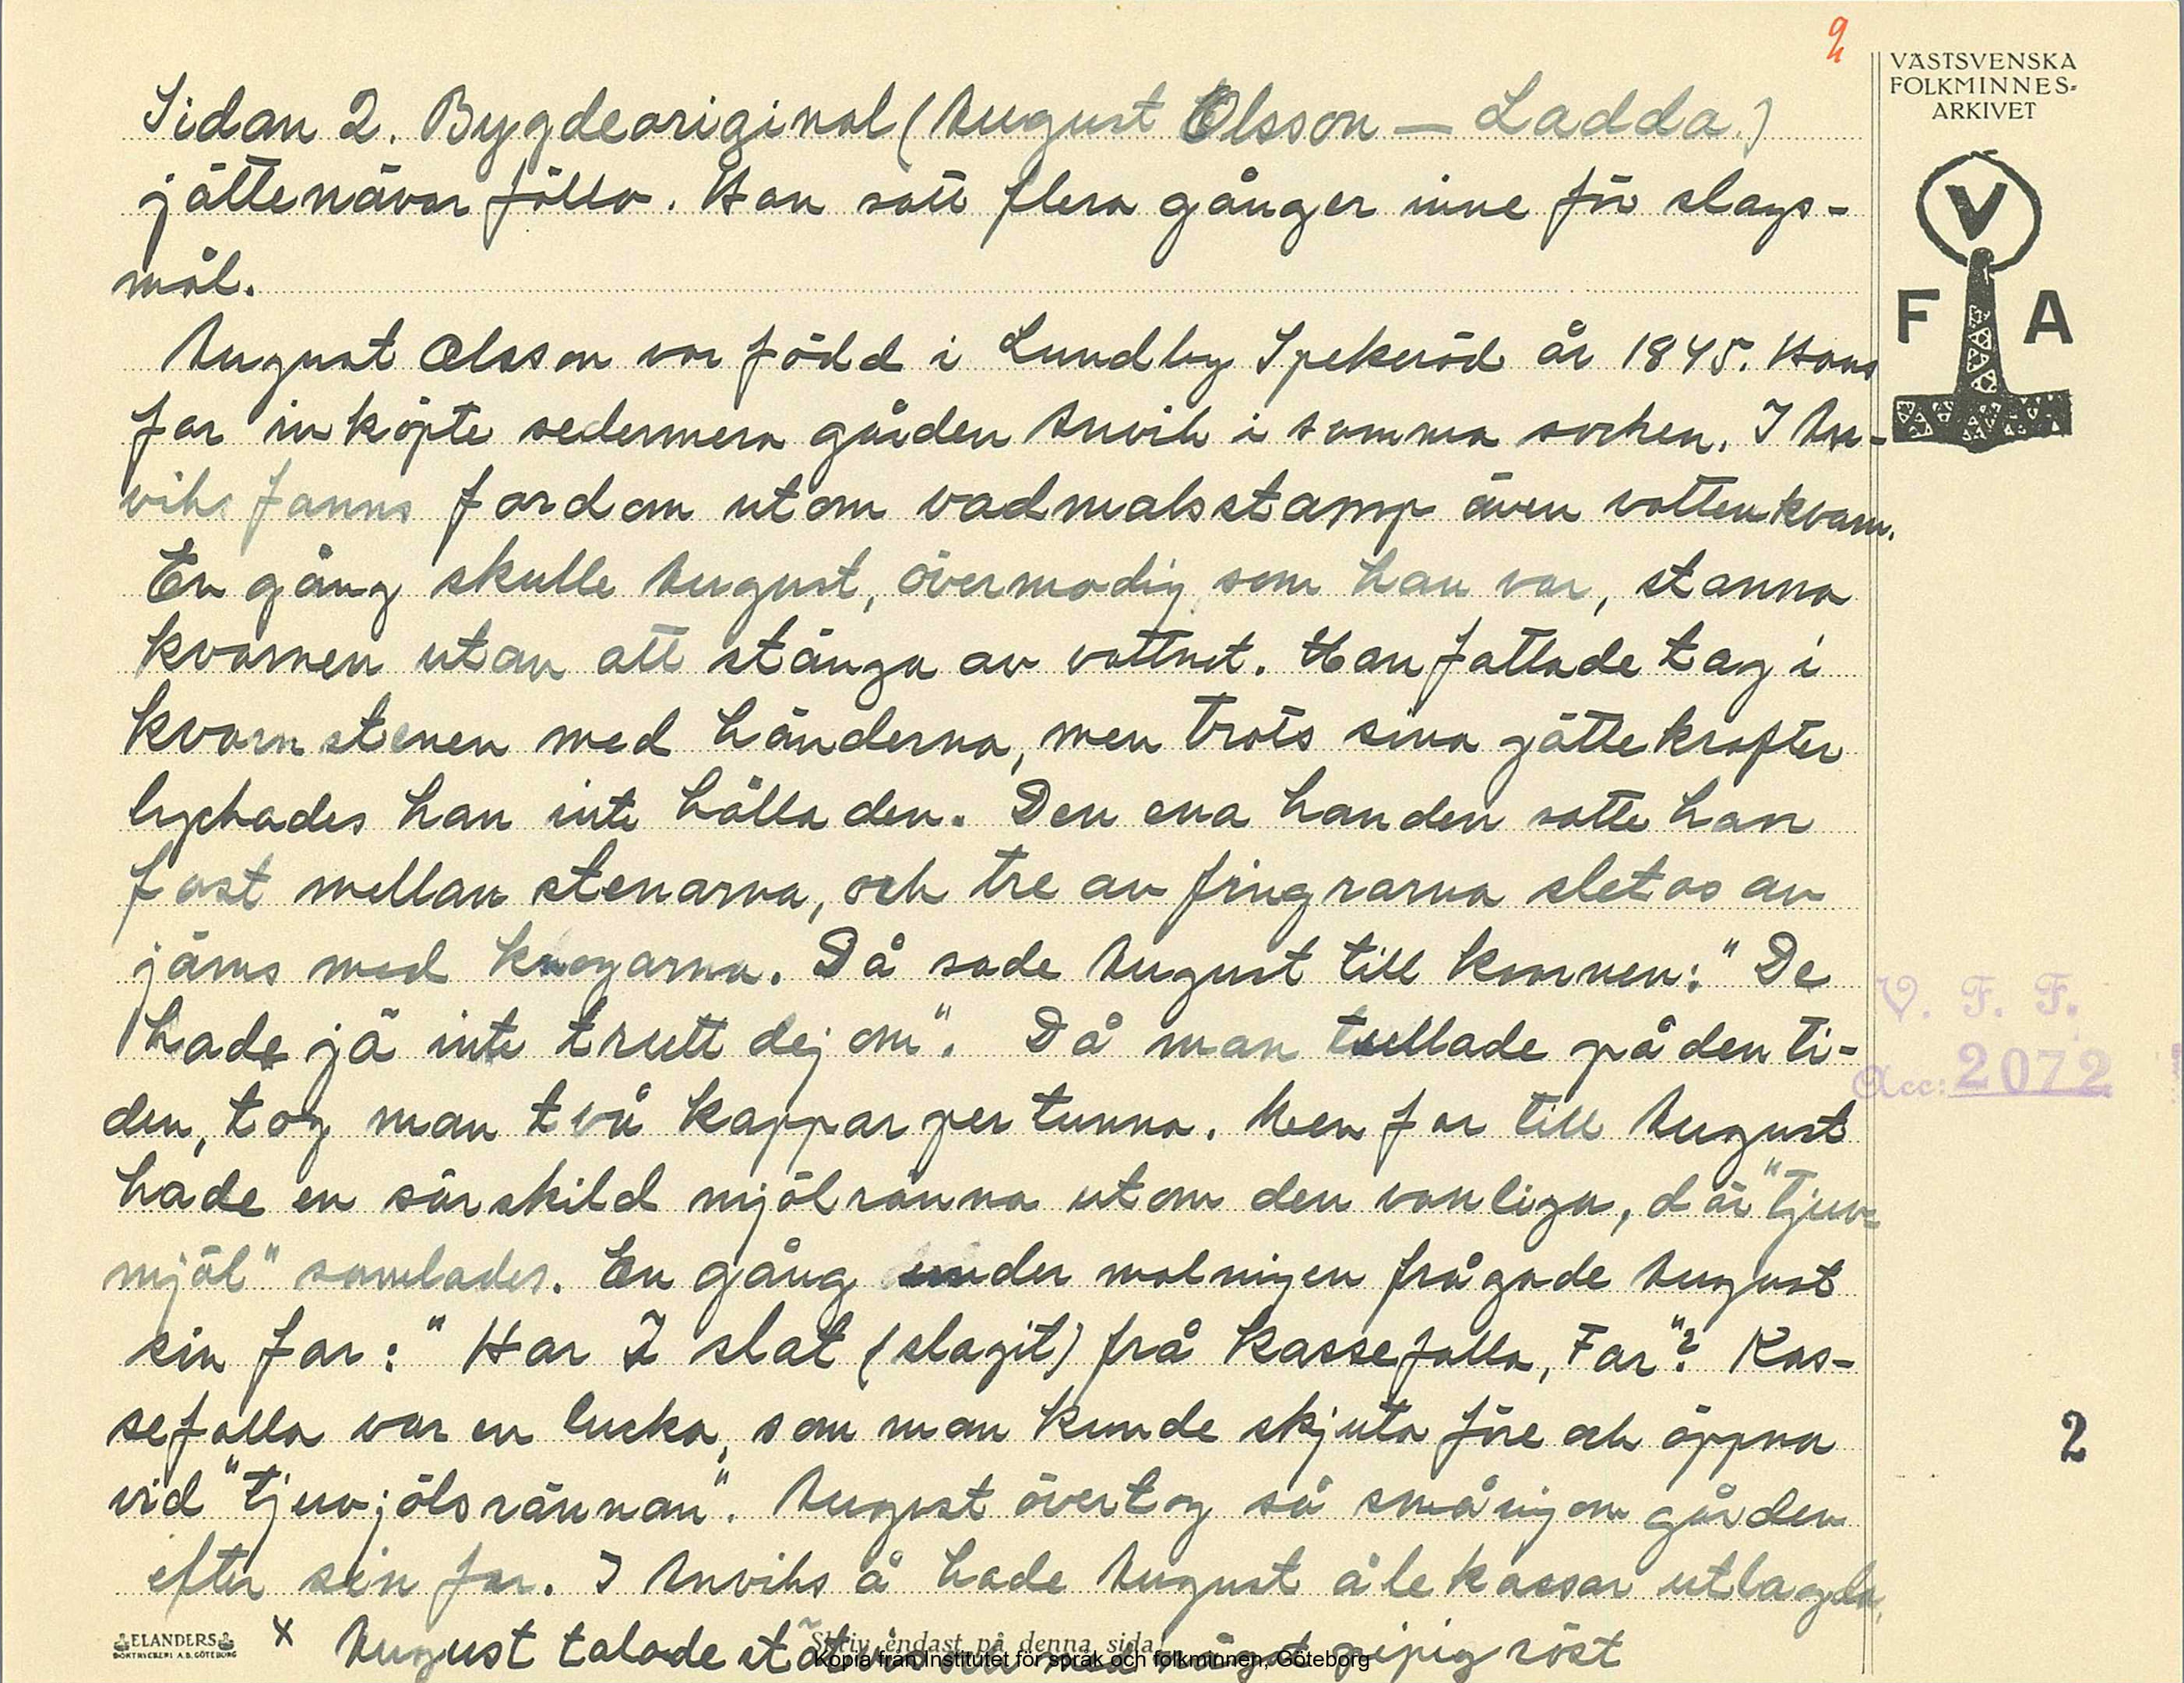 2
VÄSTSVENSKA
FOLKMINNES-
ARKIVET
V
F A
Sidan 2. Bygdeoriginal (August Olsson — Ladda.)
jättenävar fälla. Han satt flera gånger inne för slags-
mål.
August Olsson var född i Lundby Spekeröd år 1845. Hans
far inköpte sedermera gården Anvik i samma socken. I An-
viks fanns fordom utom vadmalsstamp även vattenkvarn.
En gång skulle August, övermodig som han var, stanna
kvarnen utan att stänga av vattnet. Han fattade tag i
kvarnstenen med händerna, men trots sina jättekrafter
lyckades han inte hålla den. Den ena handen satte han
fast mellan stenarna, och tre av fingrarna sletos av
jäms med knogarna. Då sade August till kvarnen: "De
hade jä inte trutt dej om". Då man tullade på den ti-
den, tog man två kappar per tunna. Men far till August
hade en särskild mjölränna utom den vanliga, där "tjuv-
mjöl" samlades. En gång under malningen frågade August
sin far: "Har I slat (slagit) frå kassefalla, Far"? Kas-
sefalla var en lucka, som man kunde skjuta före och öppna
vid "tjuvjölsrännan". August övertog så småningom gården
efter sin far. I Anviks å hade August ålekassar utlagda.
x August talade med något pipig röst
V. F. F.
Acc: 2072
2
ELANDERS
BOKTRYCKERI A.B. GÖTEBORG
Skriv endast på denna sida!
Kopia från Institutet för språk och folkminnen, Göteborg